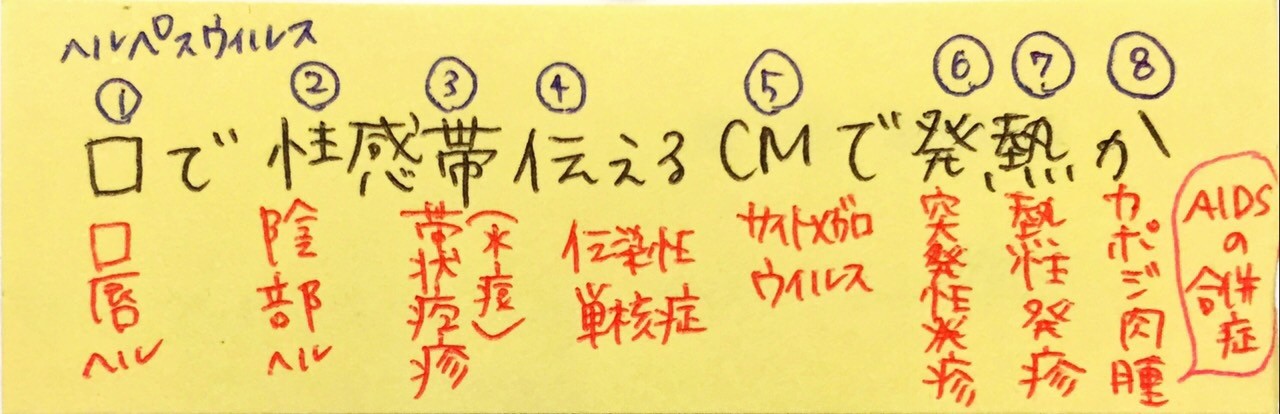 ヘルペスウイルス
① ② ③ ④ ⑤ ⑥ ⑦ ⑧
口で 性感帯 伝える CMで 発熱か
口唇ヘル
陰部ヘル
帯状疱疹
(水痘)
伝染性
単核症
サイトメガロ
ウイルス
突発性発疹
熱性発疹
カポジ肉腫
AIDS
の
合併症